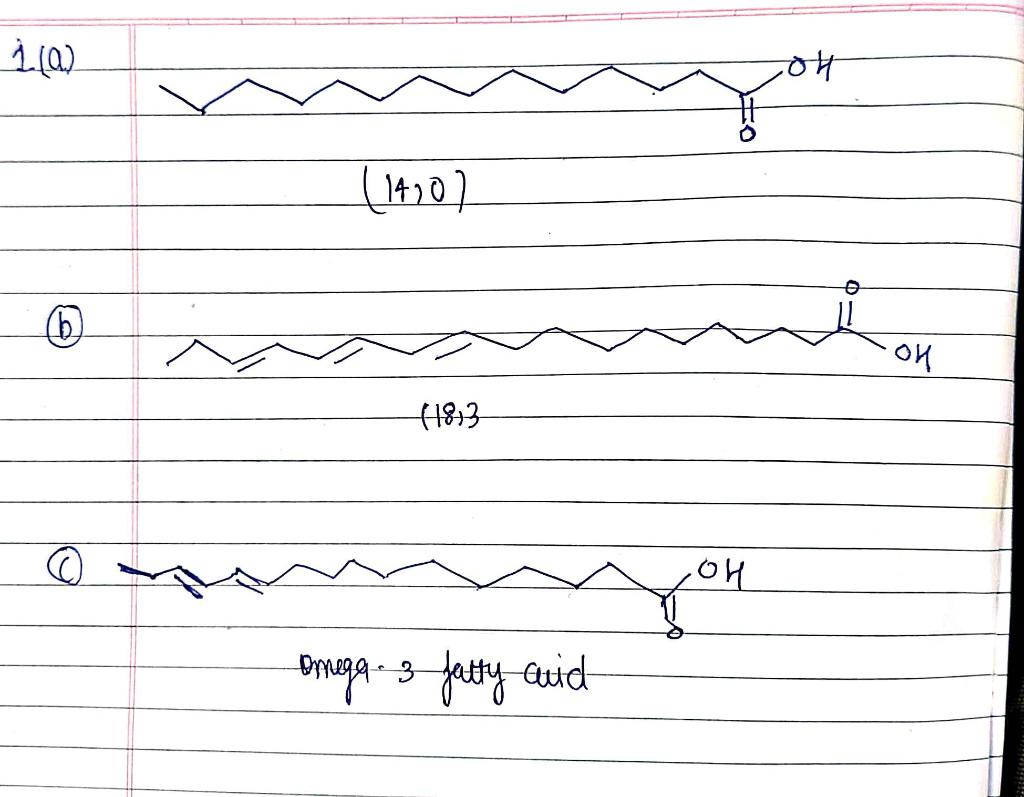 1(a)
OH
O
(14,0)
(b)
O
OH
(18,3
(c)
OH
O
Omega-3 fatty acid